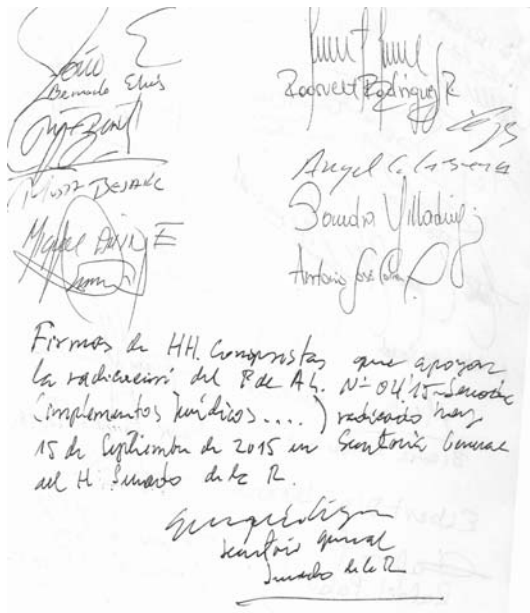 Bernardo Elías
Roosvelt Rodríguez R
Musa Besaile
Angel C. Cabrera
Sandra Villadiego
Miguel Amín E
Antonio José Correa
Firmas de HH. Congresistas que apoyan
la radicación del P de A L. Nº 04/15-Senado
(implementos jurídicos....) radicado hoy
15 de Septiembre de 2015 en Secretaría General
del H. Senado de la R.
Secretario General
Senado de la R